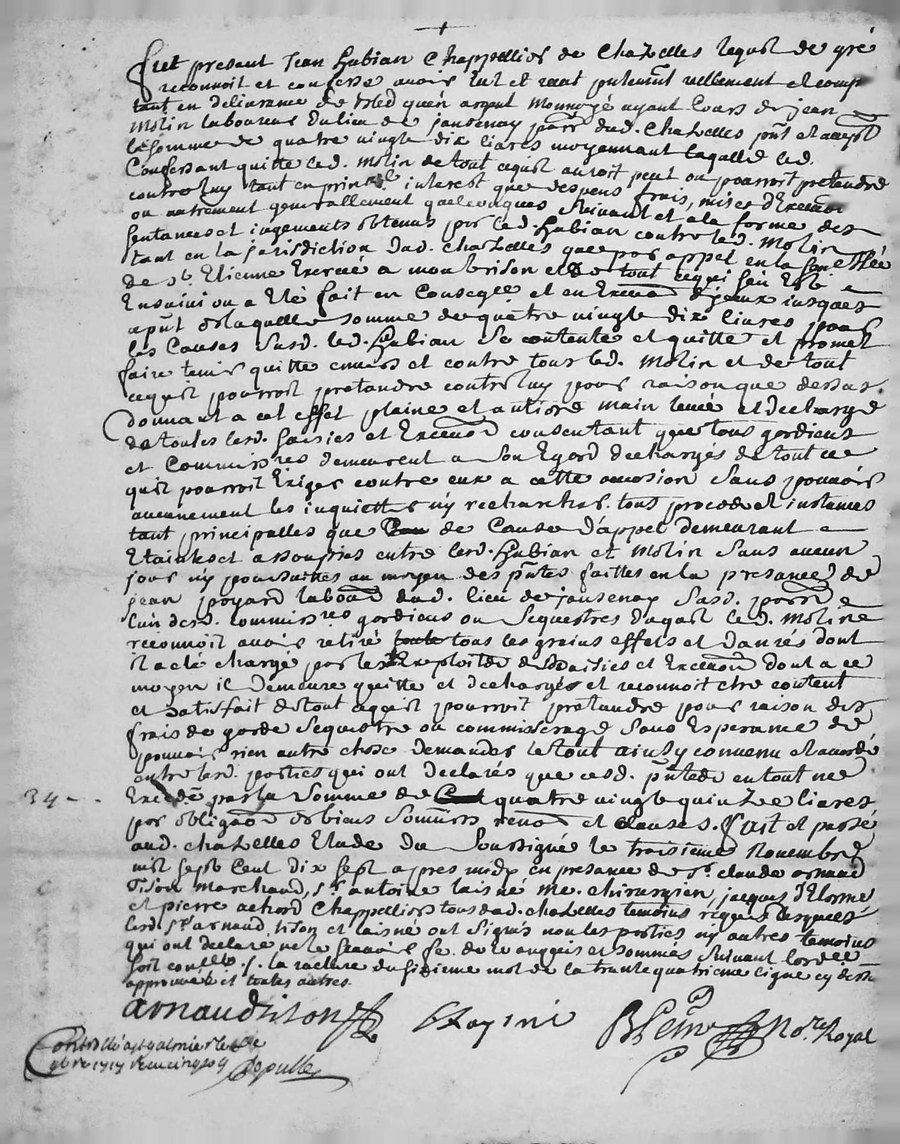 fut présent Jean hubian Chappellier de Chazelles lequel de gré
reconnoit et confesse avoir eut et receut
tant en deliverance de bled qu'en argent monnoyé ayant cours de jean
Molin laboureur du lieu de jausenay parr. dud. Chazelles pnt et accept
la somme de quatre vingt dix livres moyennant laquelle led.
Confessant quitte led. Molin de tout ce quil auroit peut ou pourroit pretendre
contre luy tant en principal interest que despens frais, mises d'Execuon
ou autrement generallement quelconques suivant et a la forme des
sentances et jugements obtenus par led. hubian contre led. Molin
tant en la jurisdiction dud. Chazelles que par appel en la senechée
de st. Etienne Exercée a monbrison et de tout ce qui s'en Est
Ensuivi ou a Eté fait en conseqce et en Execuon d'jceux jusques
a pnt de laquelle somme de quatre vingt dix livres pour
les Causes susd. led. hubian se contente et quitte et promet
faire tenir quitte envers et contre tous led. Molin et de tout
ce quil pourroit pretandre contre luy pour raison que dessus
donnant a cet effet plaine et antiere main levée et decharge
de toutes lesd. saisies et Execuon consentant que tous gardiens
et Commissres demeurent a son Egard dechargés de tout ce
quil pourroit Exiger contre eux a cette occasion sans pouvoir
aucunement les inquietter ny rechercher. tous proces et instances
tant principalles que de Cause d'appel demeurant
Etaints et assoupies entre lesd. hubian et Molin sans aucun
jour ny poursuittes au moyen des pntes faittes en la presance de
jean poyard labour dud. lieu de jausenay susd. parr.
l'un desd. commissres gardiens ou sequestres duquel led. Molin
reconnoit avoir retiré toute tous les grains effets et danrés dont
il a eté chargé par les Exploits de saisies et Execuon dont a ce
moyen il demeure quitte et dechargé et reconnoit etre contant
et satisfait de tout ce quil pourroit pretandre pour raison des
frais de garde sequestre ou commisserage sans Esperance de
pouvoir rien autre chose demander le tout ainsy convenu et accordé
entre lesd. parties qui ont declarés que cesd. pntes en tout ne
34 - Excede pas la somme de quatre vingt quinze livres
par obligaon de biens soumiss renon et clauses. fait et passé
aud. chazelles Etude du soussigné le troisieme Novembre
mil sept Cent dix sept apres midy en presance de sr. claude arnaud
tison marchand, sr. antoine laisné me. chirurgien, jacques d'Elorme
et pierre achard Chappelliers tous dud. chazelles temoins requis lesquels
lesd. srs arnaud tison et laisné ont signés non les parties ny autres temoins
qui ont declaré ne le scavoir fe. de ce enquis et sommés suivant lordce
soit conllé /. la rature du sixieme mot de la trante quatrieme ligne cy dessus
approuvée et toutes autres.
arnaudtison
Nore Royal
Controllé a st galmier le
9bre 1717 Receu cinq sols